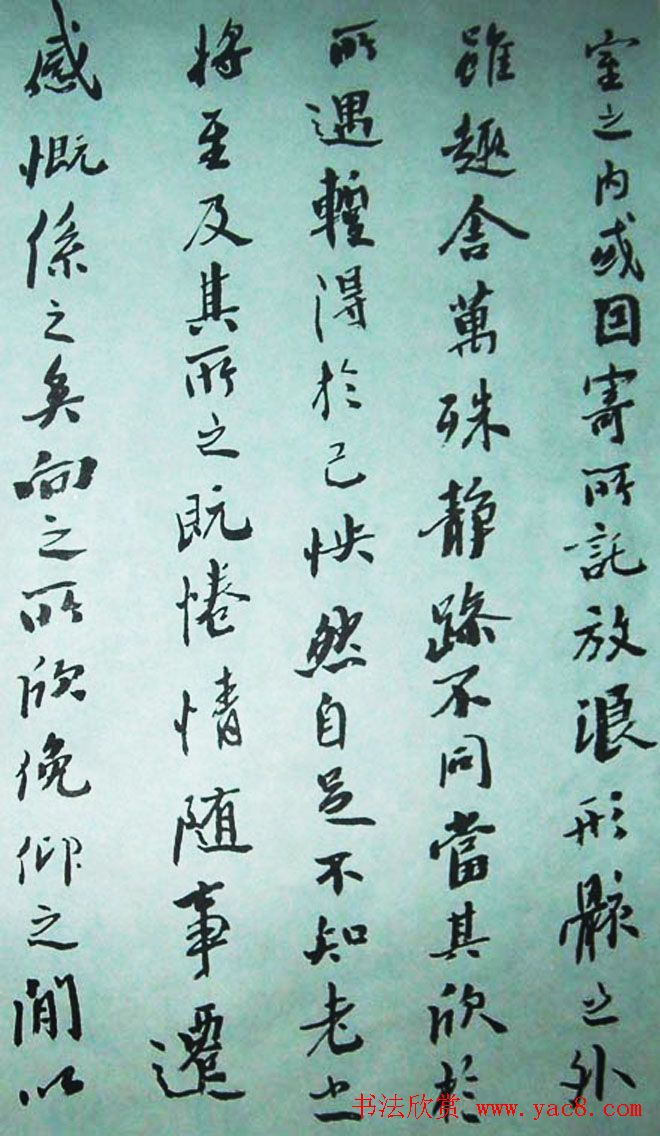 室之内或因寄所託放浪形骸之外
雖趣舍萬殊静躁不同當其欣於
所遇蹔得於己怏然自足不知老之
将至及其所之既惓情随事遷
感慨係之矣向之所欣俛仰之間以
书法欣赏 www.yac8.com